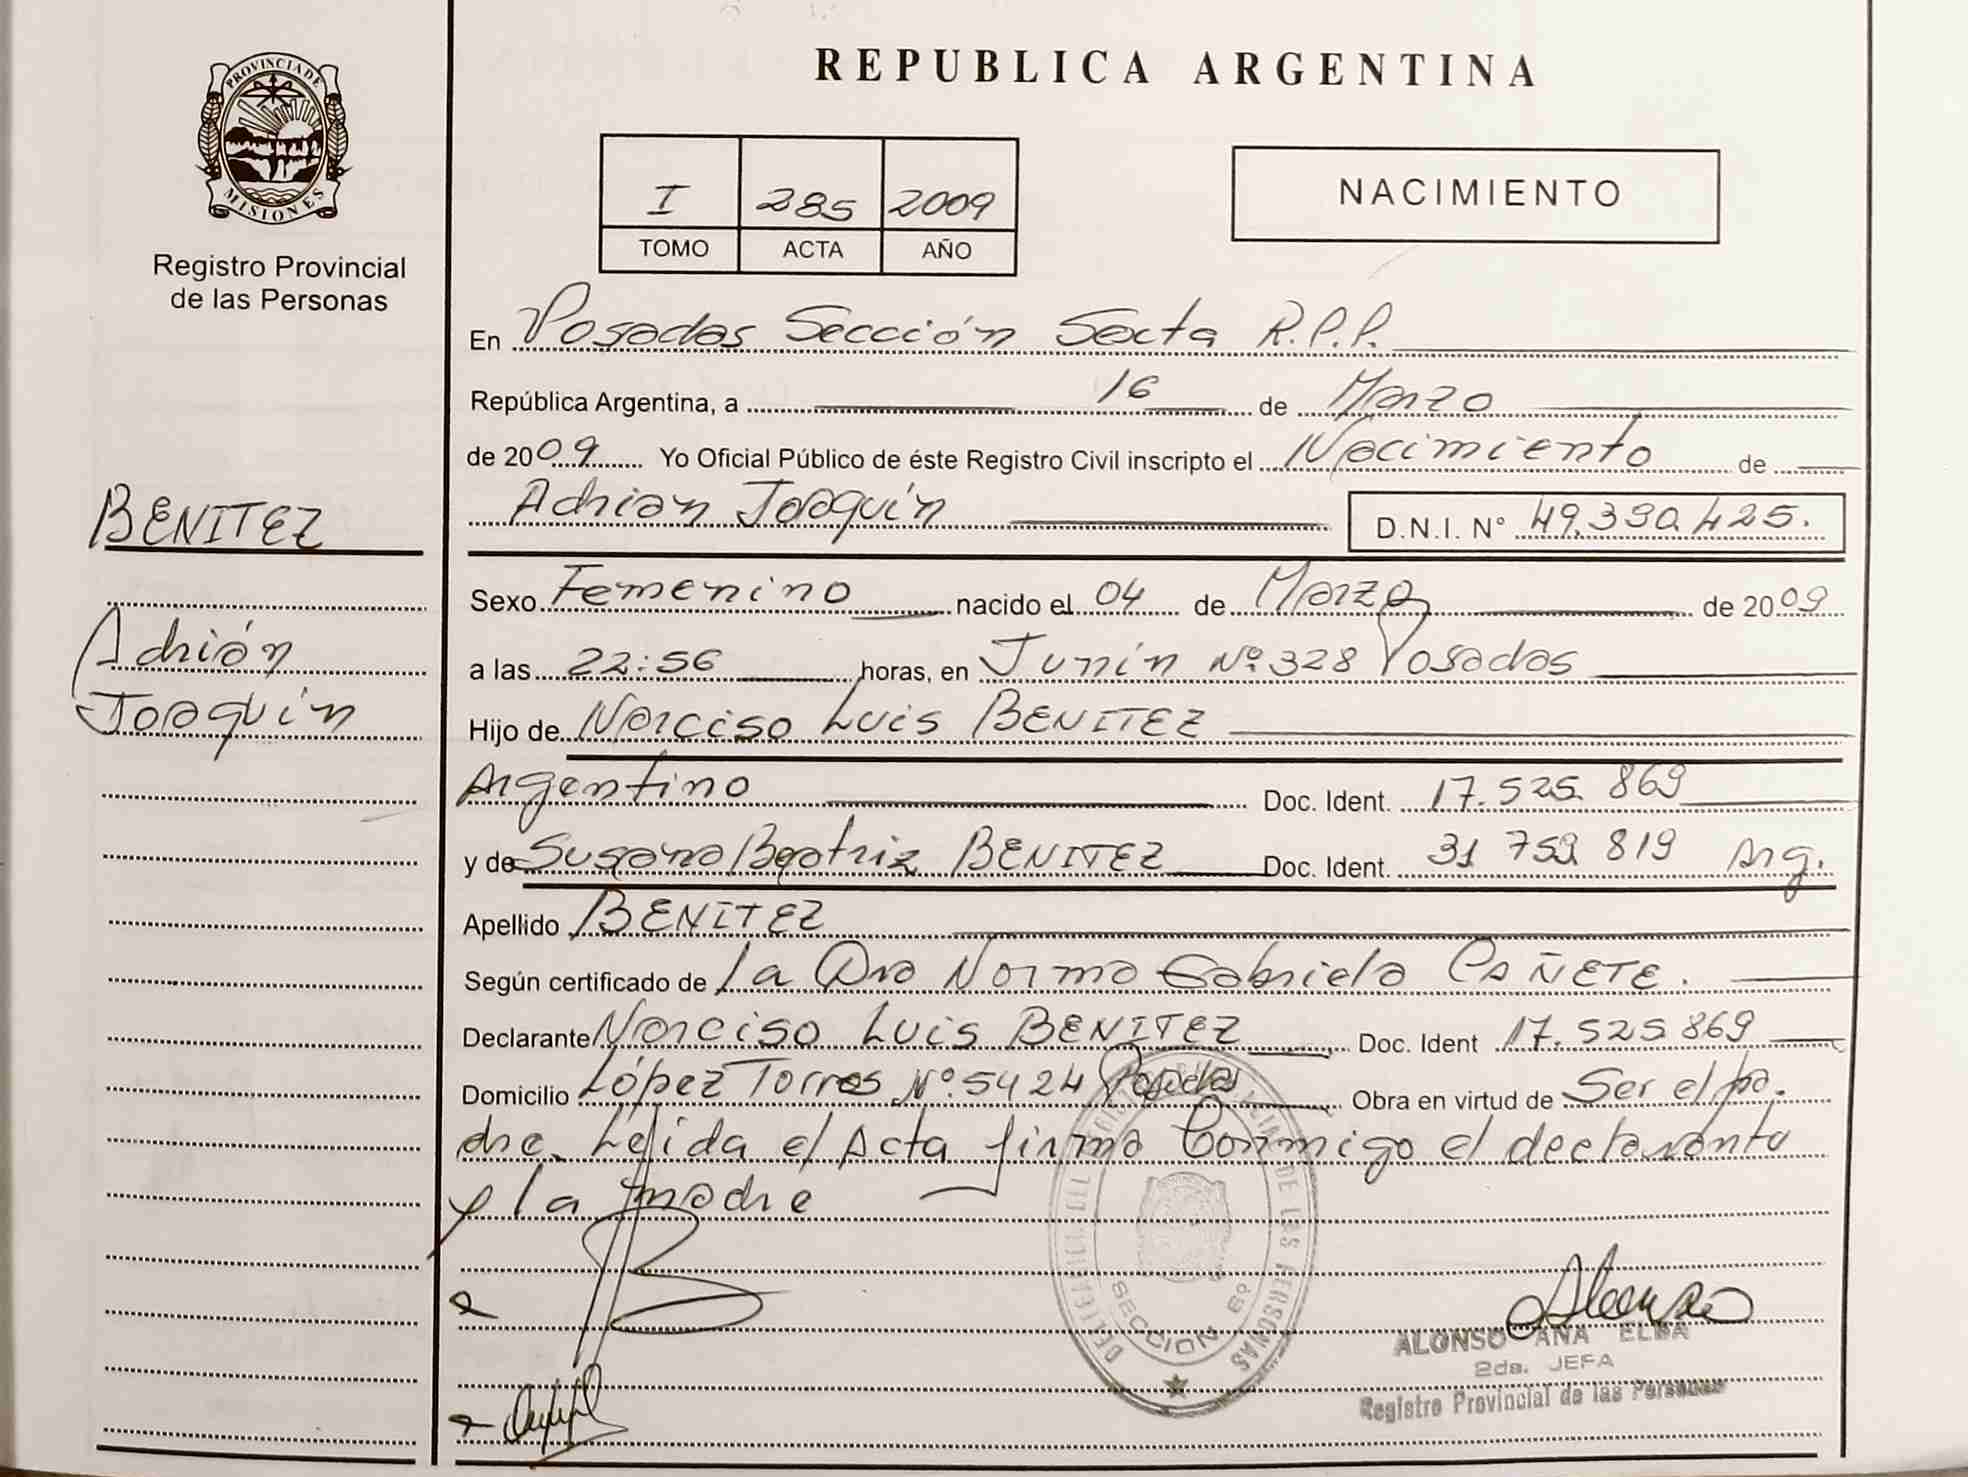 REPUBLICA ARGENTINA
PROVINCIA DE
MISIONES
Registro Provincial
de las Personas
I 285 2009
TOMO ACTA AÑO
NACIMIENTO
En Posadas Sección Sexta R.P.P.
República Argentina, a 16 de Marzo
de 2009 Yo Oficial Público de éste Registro Civil inscripto el Nacimiento de
Adrian Joaquín D.N.I. N° 49.390.425.
BENITEZ
Adrián
Joaquín
Sexo Femenino nacido el 04 de Marzo de 2009
a las 22:56 horas, en Junín Nº 328 Posadas
Hijo de Narciso Luis BENITEZ
Argentino Doc. Ident. 17.525.869
y de Susana Beatriz BENITEZ Doc. Ident. 31 759 819 Arg.
Apellido BENITEZ
Según certificado de La Dra Norma Gabriela CAÑETE.
Declarante Narciso Luis BENITEZ Doc. Ident 17.525.869
Domicilio López Torres Nº 5424 Posadas Obra en virtud de Ser el pa.
dre. Leída el Acta firma Conmigo el declarante
y la madre
DE LAS PERSONAS
SECCION 6º
ALONSO ANA ELBA
2da. JEFA
Registro Provincial de las Personas